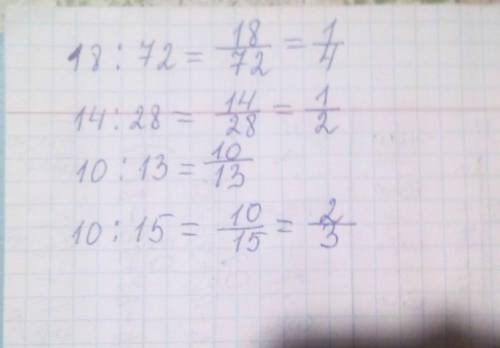 18 : 72 = 18/72 = 1/4
14 : 28 = 14/28 = 1/2
10 : 13 = 10/13
10 : 15 = 10/15 = 2/3